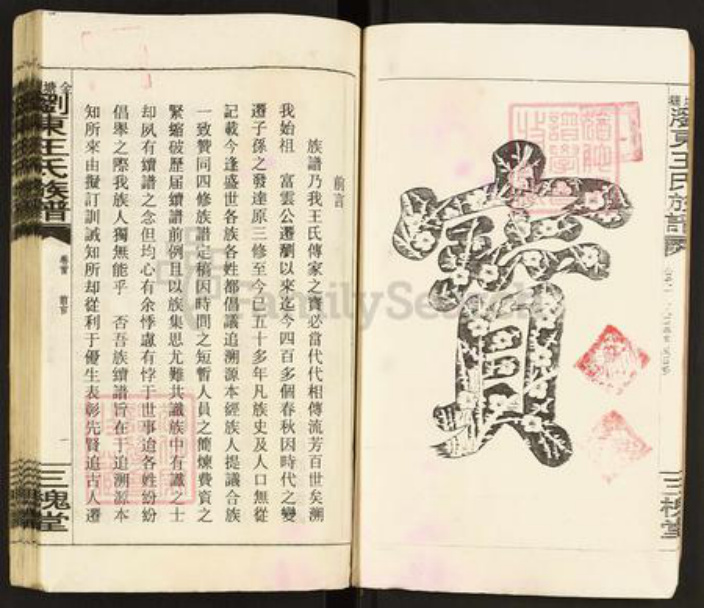 寶
前言
族譜乃我王氏傳家之寶必當代代相傳流芳百世矣溯
我始祖 富雲公遷瀏以來迄今四百多個春秋因時代之變
遷子孫之發達原三修至今已五十多年凡族史及人口無從
記載今逢盛世各族各姓都倡議追溯源本經族人提議合族
一致贊同四修族譜定稿因時間之短暫人員之簡煉費資之
緊縮破歷屆續譜前例且以族集思尤難共識族中有識之士
却夙有續譜之念但均心有余悸慮有悖于世事迨各姓紛紛
倡舉之際我族人獨無能乎 否吾族續譜旨在于追溯源本
知所來由擬訂訓誡知所却從利于優生表彰先賢追古人遷
金塘
劉東王氏族譜
卷首 前言
一
三槐堂
瀏東王氏族譜
三槐堂
FamilySearch